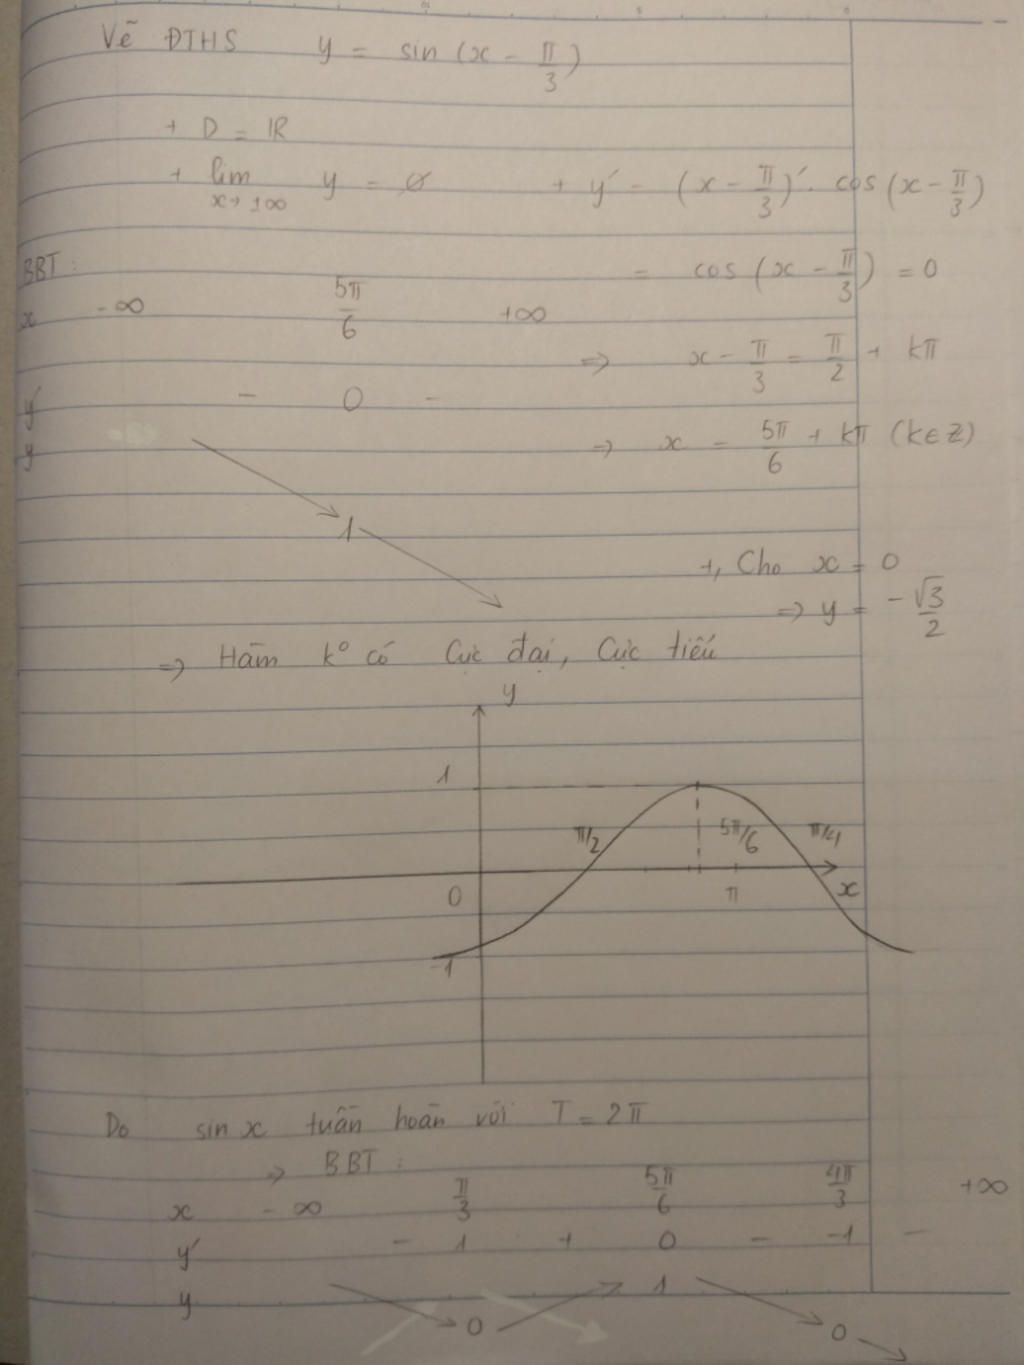 Vẽ ĐTHS y = sin (x - π/3)
+ D = ℝ
+ lim x→±∞ y = ∅ + y' = (x - π/3)'. cos(x - π/3)
BBT: = cos (x - π/3) = 0
x -∞ 5π/6 +∞
=> x - π/3 = π/2 + kπ
y' - 0 -
y => x = 5π/6 + kπ (k∈Z)
1
+, Cho x = 0
=> y = -√3/2
=> Hàm k° có Cực đại, Cực tiểu
y
1
π/2 5π/6 π/4
0 π x
-1
Do sin x tuần hoàn với T = 2π
=> BBT:
x -∞ π/3 5π/6 4π/3 +∞
y' - 1 + 0 - -1 -
y 1
0 0